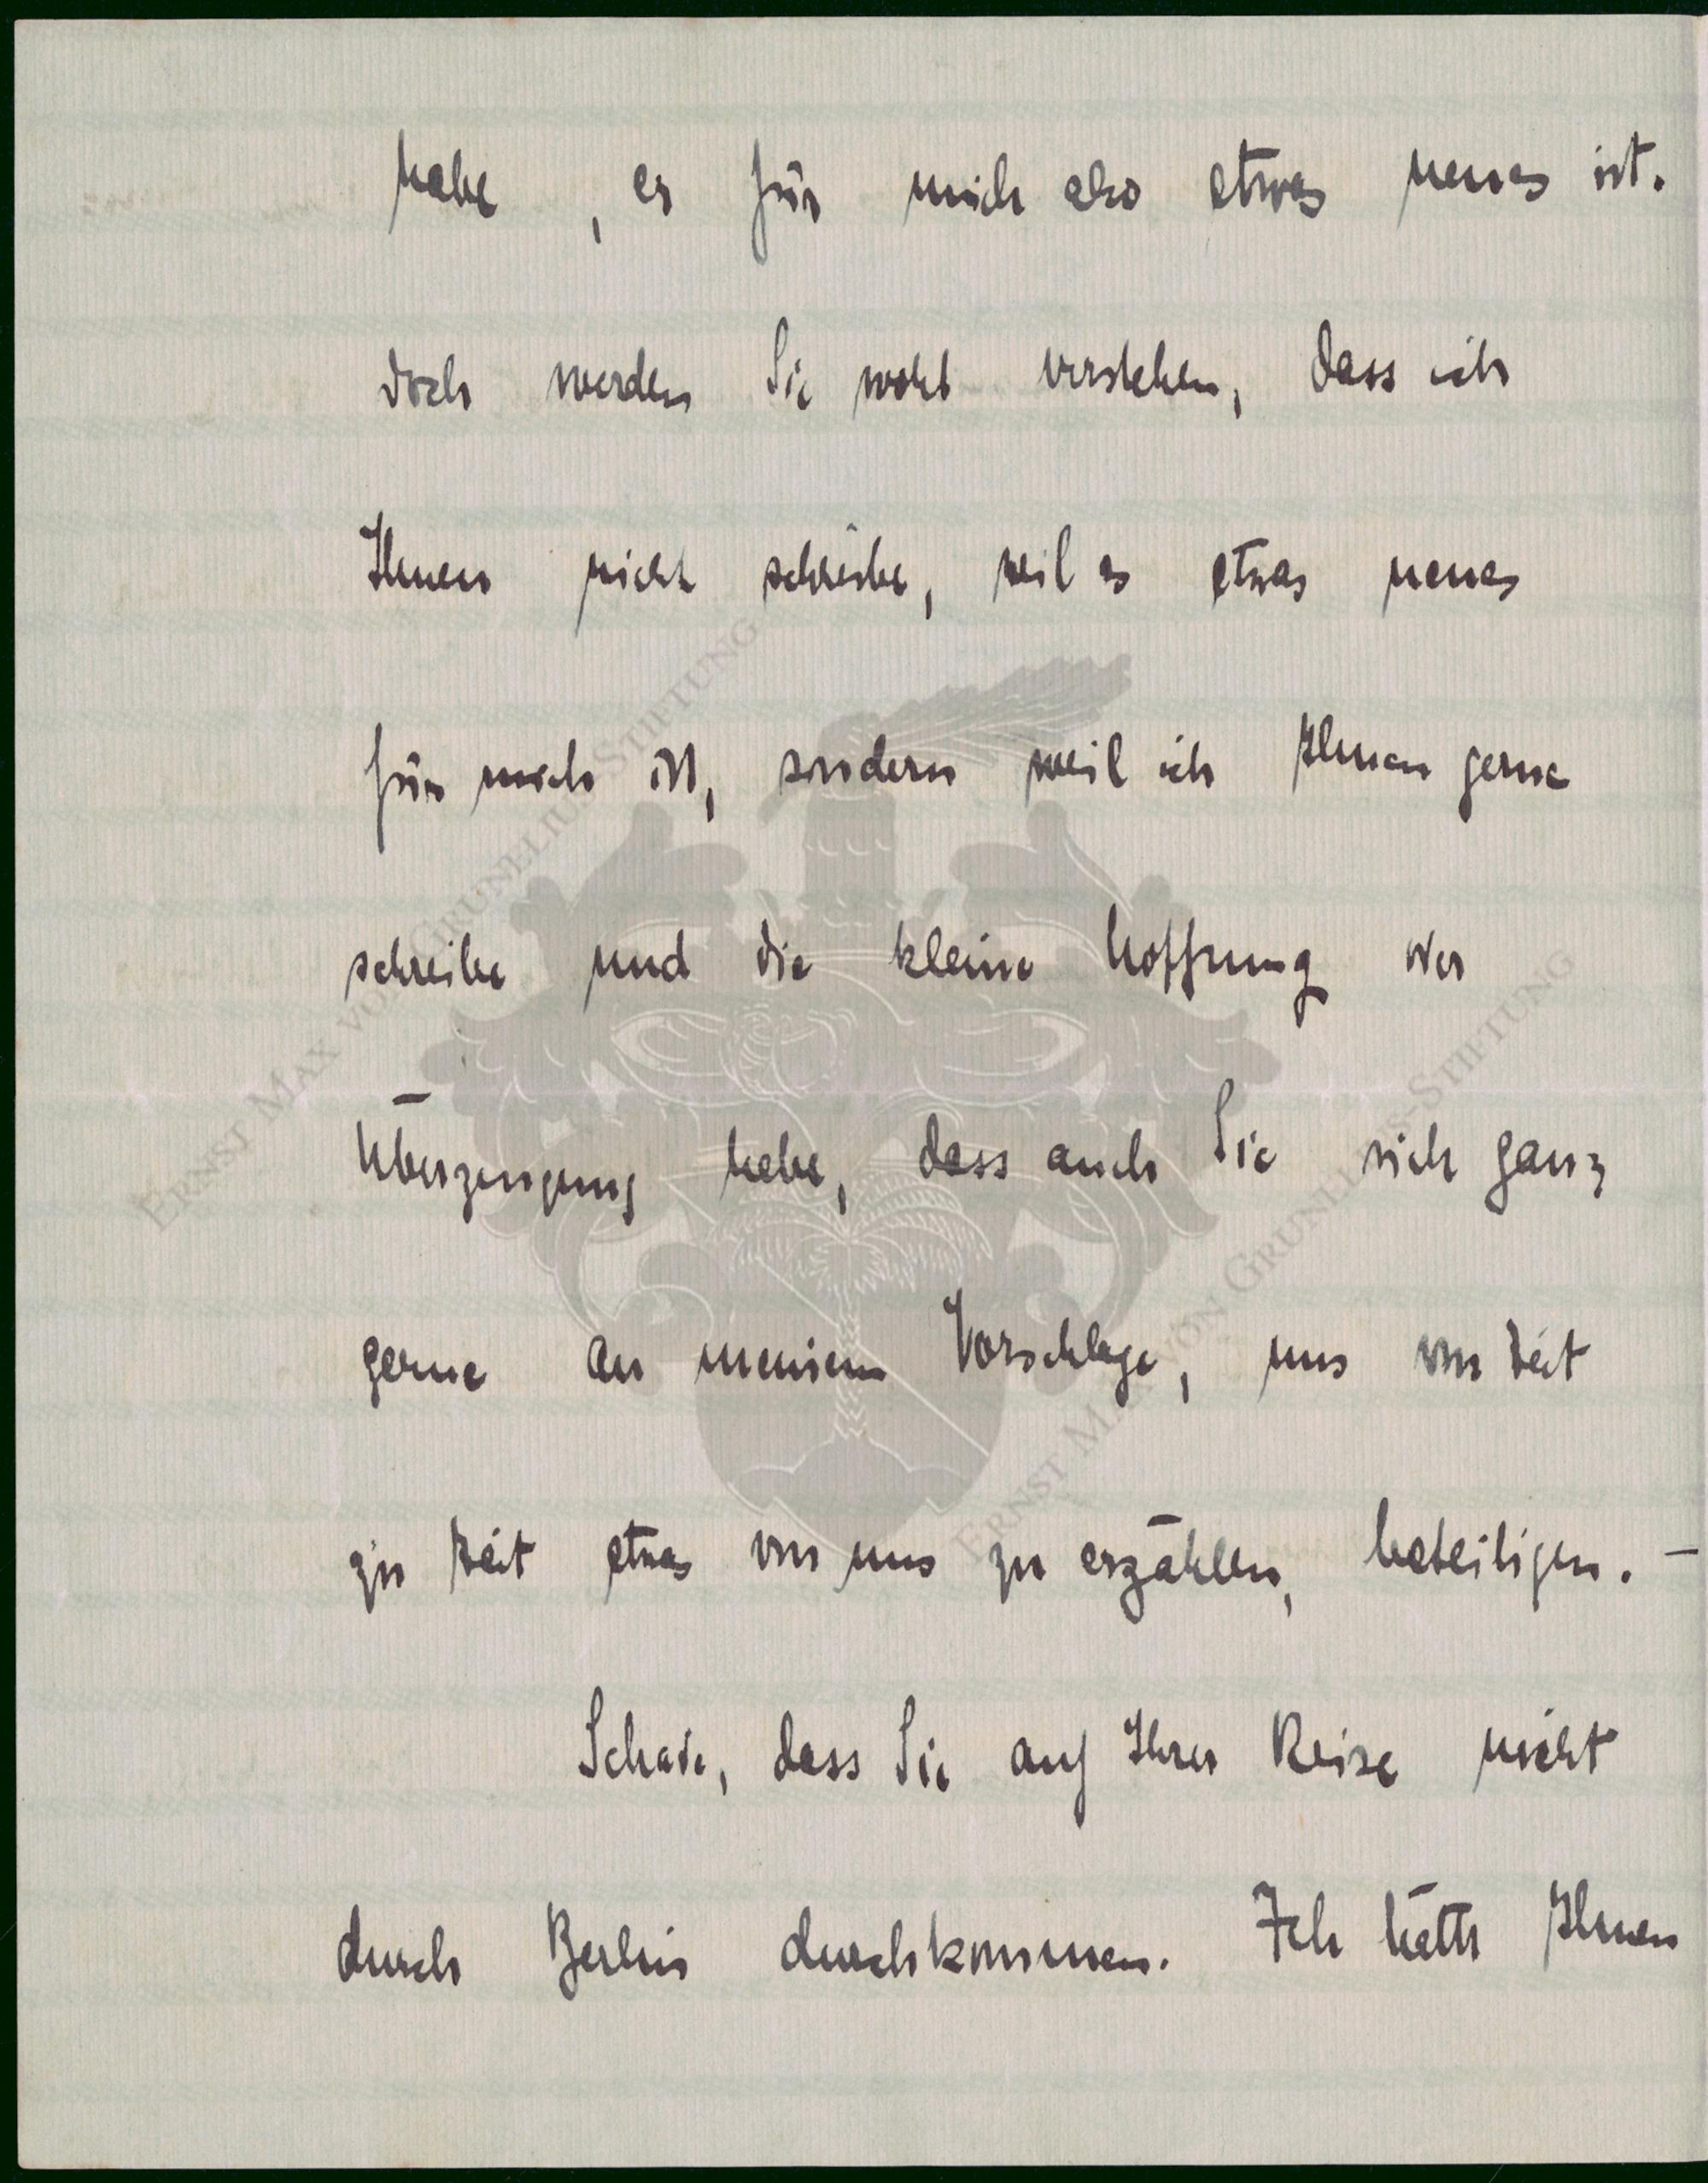 habe, es für mich also etwas neues ist.
doch werden Sie wohl verstehen, dass ich
Ihnen nicht schreibe, weil es etwas neues
für mich ist, sondern weil ich Ihnen gerne
schreibe und die kleine Hoffnung oder
Überzeugung habe, dass auch Sie sich ganz
gerne an meinem Vorschlage, uns von Zeit
zu Zeit etwas von uns zu erzählen, beteiligen. –
Schade, dass Sie auf Ihrer Reise nicht
durch Berlin durchkommen. Ich hätte Ihnen
ERNST MAX VON GRUNELIUS-STIFTUNG
ERNST MAX VON GRUNELIUS-STIFTUNG